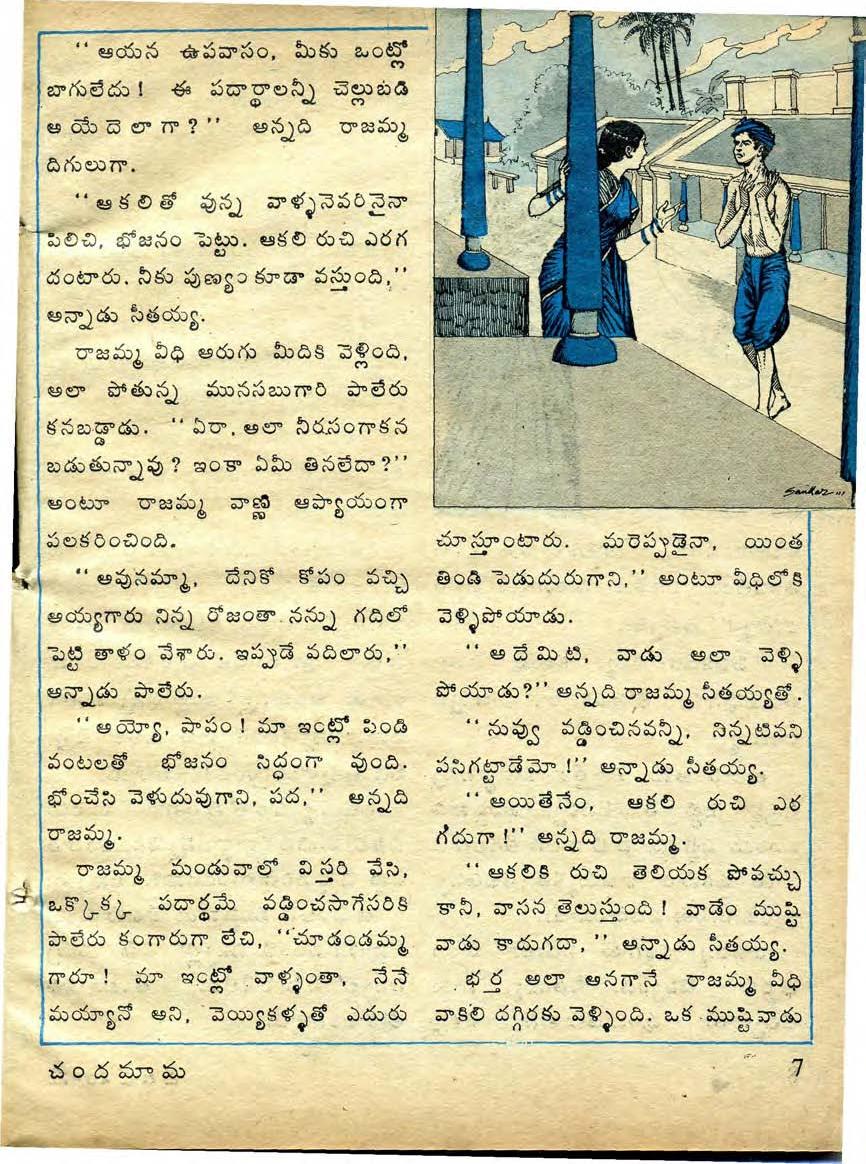 “ ఆయన ఉపవాసం, మీకు ఒంట్లో
బాగులేదు ! ఈ పదార్థాలన్నీ చెల్లుబడి
అ యే దె లా గా ? ” అన్నది రాజమ్మ
దిగులుగా.
“ ఆ క లి తో వున్న వాళ్ళనెవరినైనా
పిలిచి, భోజనం పెట్టు. ఆకలి రుచి ఎరగ
దంటారు. నీకు పుణ్యం కూడా వస్తుంది,”
అన్నాడు సీతయ్య.
రాజమ్మ వీధి అరుగు మీదికి వెళ్లింది,
అలా పోతున్న మునసబుగారి పాలేరు
కనబడ్డాడు. “ ఏరా, అలా నీరసంగాకన
బడుతున్నావు ? ఇంకా ఏమీ తినలేదా ?”
అంటూ రాజమ్మ వాణ్ణి ఆప్యాయంగా
పలకరించింది.
“ అవునమ్మా, దేనికో కోపం వచ్చి
అయ్యగారు నిన్న రోజంతా నన్ను గదిలో
పెట్టి తాళం వేశారు. ఇప్పుడే వదిలారు,”
అన్నాడు పాలేరు.
“ అ యో్య, పాపం ! మా ఇంట్లో పిండి
వంటలతో భోజనం సిద్ధంగా వుంది.
భోంచేసి వెళుదువుగాని, పద,” అన్నది
రాజమ్మ.
రాజమ్మ మండువాలో వి స్తరి వేసి,
ఒక్కొక్క పదార్థమే వడ్డించసాగేసరికి
పాలేరు కంగారుగా లేచి, “చూడండమ్మ
గారూ ! మా ఇంట్లో వాళ్ళంతా, నేనే
మయ్యానో అని, వెయ్యికళ్ళతో ఎదురు
చూస్తూంటారు. మరెప్పుడైనా, యింత
తిండి పెడుదురుగాని,” అంటూ వీధిలోకి
వెళ్ళిపోయాడు.
“ అ దే మి టి, వాడు అలా వెళ్ళి
పోయాడు?” అన్నది రాజమ్మ సీతయ్యతో.
“ నువ్వు వడ్డించినవన్నీ, నిన్నటివని
పసిగట్టాడేమో !” అన్నాడు సీతయ్య.
“ అయితేనేం, ఆకలి రుచి ఎర
గదుగా !” అన్నది రాజమ్మ.
“ ఆకలికి రుచి తెలియక పోవచ్చు
కానీ, వాసన తెలుస్తుంది ! వాడేం ముష్టి
వాడు కాదుగదా, ” అన్నాడు సీతయ్య.
భ ర్త అలా అనగానే రాజమ్మ వీధి
వాకిలి దగ్గిరకు వెళ్ళింది. ఒక ముష్టివాడు
చ ం ద మా మ
7